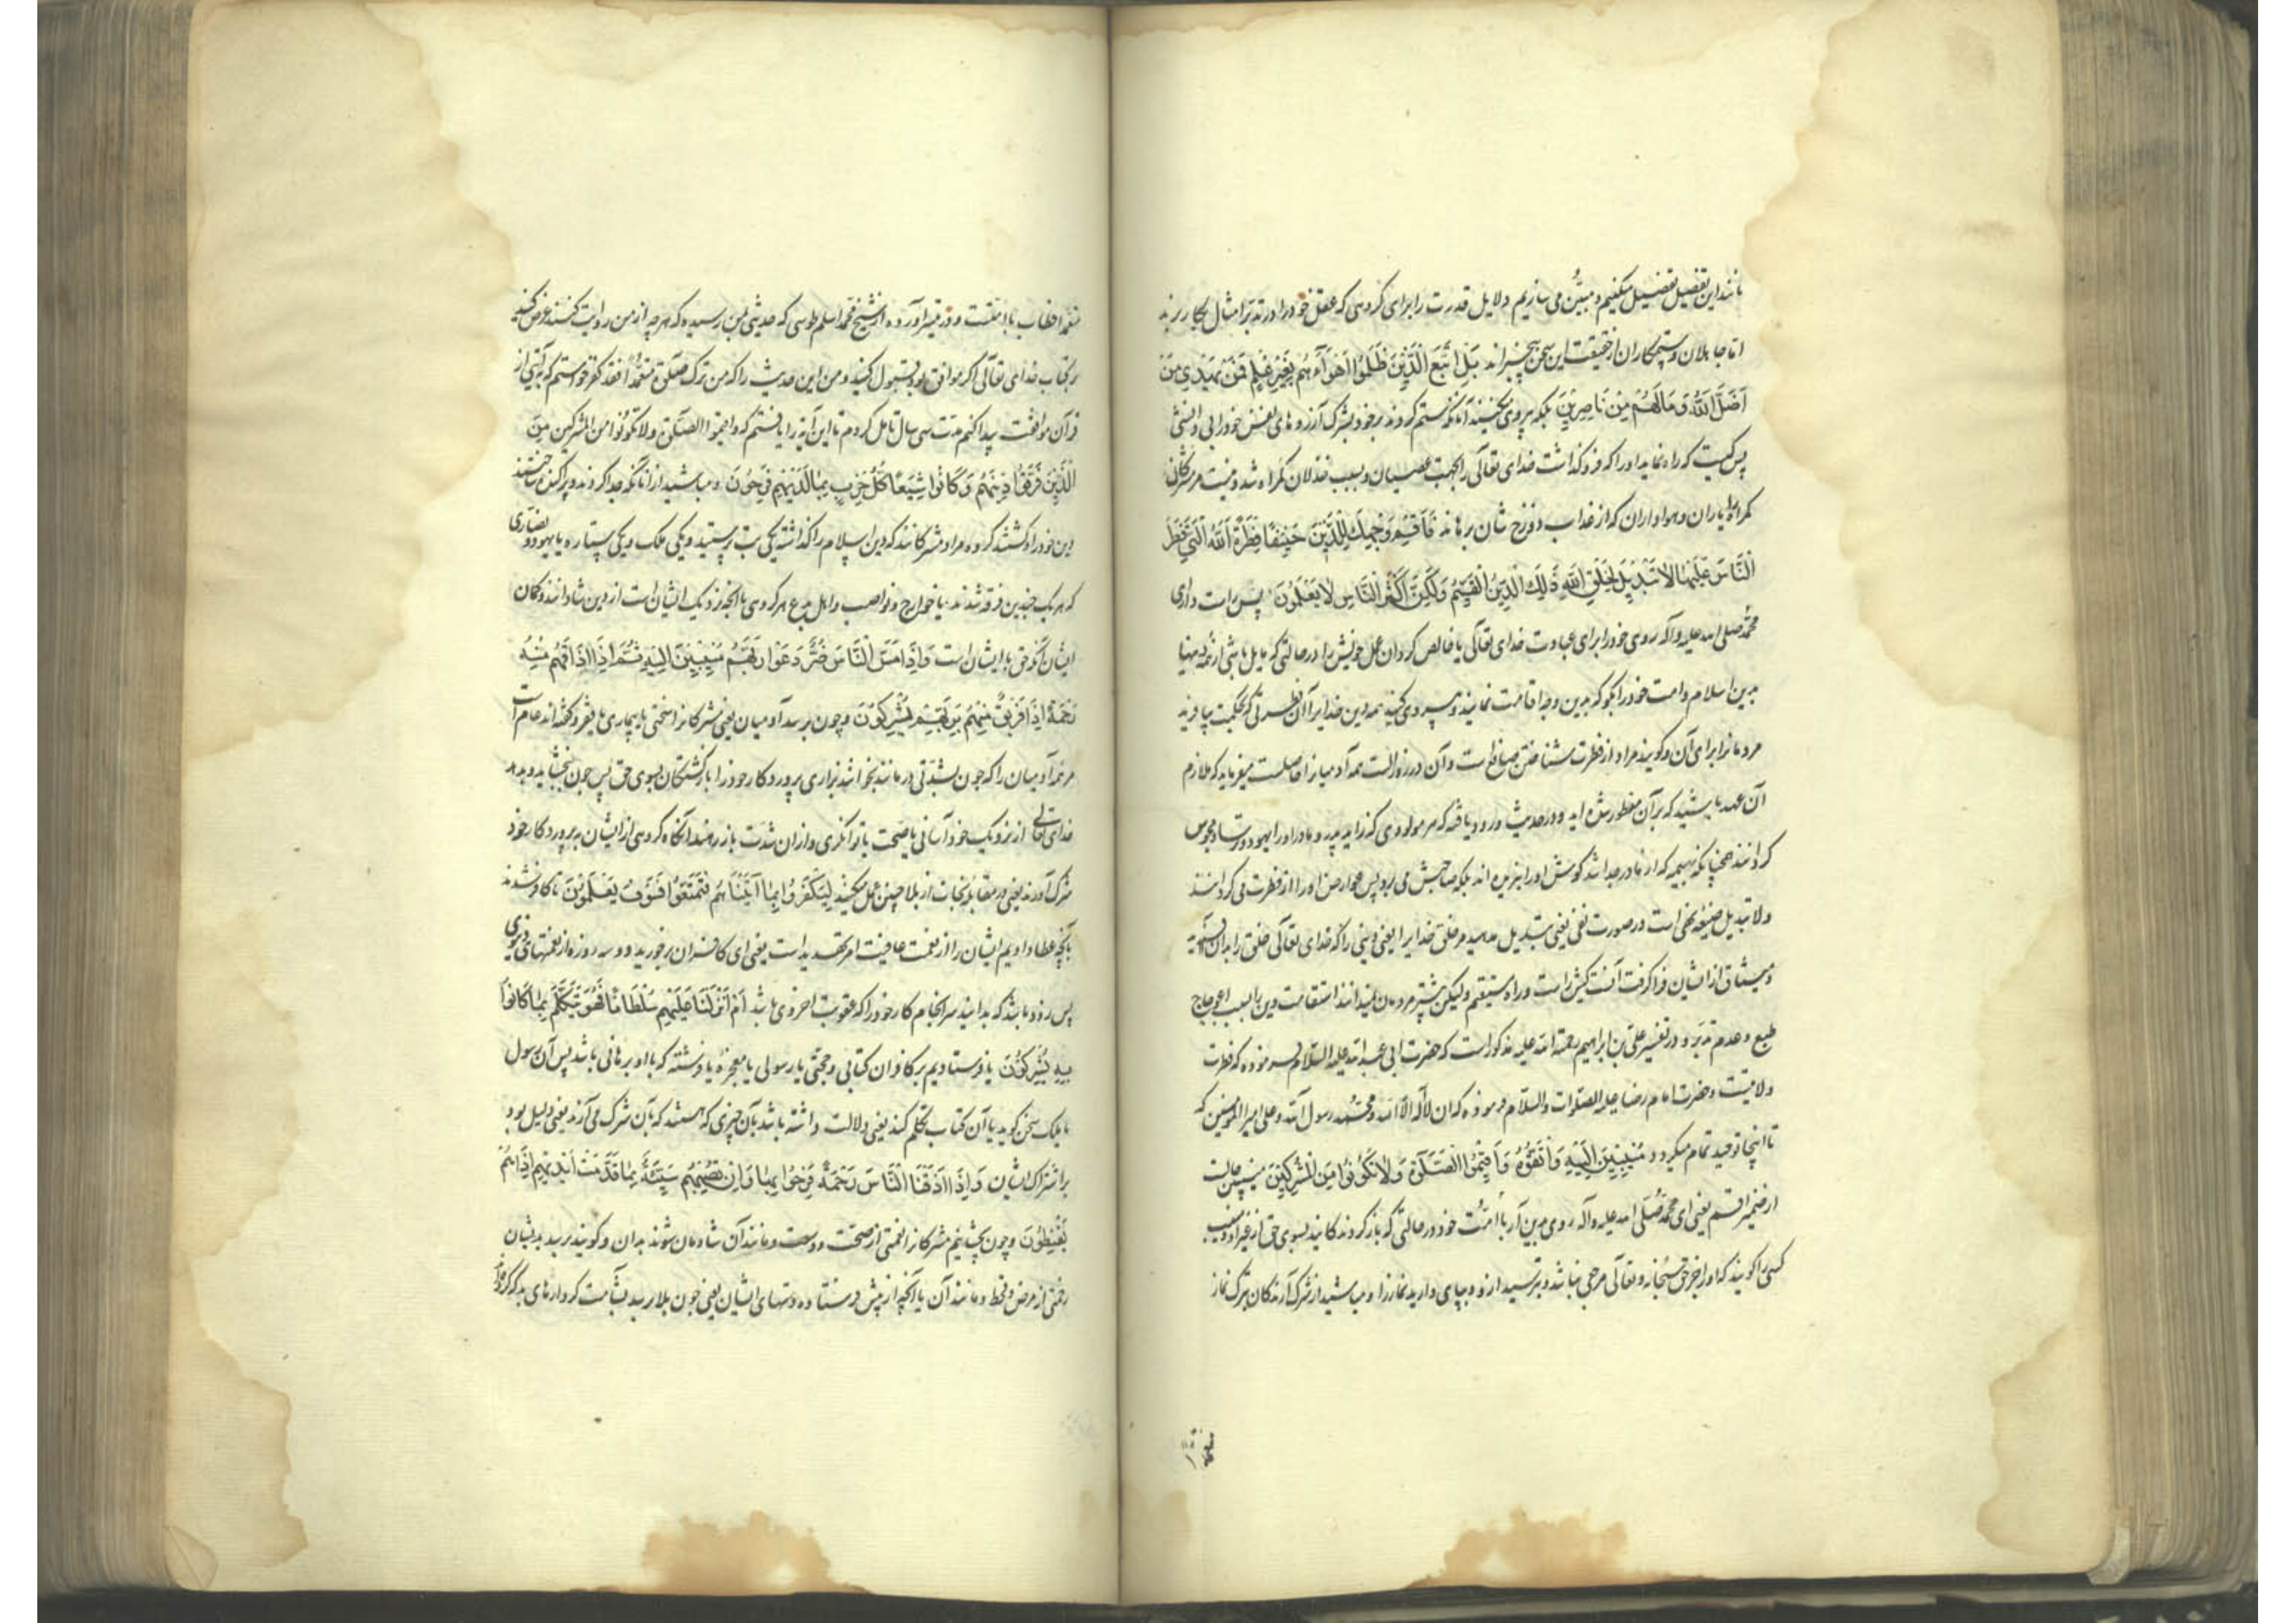 مانند این تفصیل تفصیل میکنیم و مبیّن می سازیم دلایل قدرت را برای کروهی که عقل خود را در تدبّر امثال بکار برند
اما جاهلان و ستمکاران از حقیقت این سخن بیخبراند بَلِ اتَّبَعَ الَّذِینَ ظَلَمُوا اَهْوَآءَهُمْ بِغَیْرِ عِلْمٍ فَمَنْ یَهْدِی مَنْ
اَضَلَّ اللّٰهُ وَ مَا لَهُمْ مِنْ نَاصِرِینَ بلکه پیروی کنند آنانکه ستم کردند بر خود بشرک آرزوهای نفس خود را بی دانشی
پس کیست که راه نماید او را که فرو کذاشت خدای تعالی بجهت عصیان و بسبب خذلان کمراه شد و نیست مر مشرکان
کمراه را یاران و هواداران که از عذاب دوزخ شان برهانند فَاَقِمْ وَجْهَکَ لِلدِّینِ حَنِیفًا فِطْرَةَ اللّٰهِ الَّتِی فَطَرَ
النَّاسَ عَلَیْهَا لَا تَبْدِیلَ لِخَلْقِ اللّٰهِ ذٰلِکَ الدِّینُ الْقَیِّمُ وَلٰکِنَّ اَکْثَرَ النَّاسِ لَا یَعْلَمُونَ پس راست دار ای
محمّد صلی الله علیه و آله روی خود را برای عبادت خدای تعالی یا خالص کردان عمل خویش را در حالتی که مایل باشی از همه دینها
بدین اسلام و امت خود را بکو که بدین وجه اقامت نمایند و پیروی کنید همه دین خدایرا آن فطرتی که بحکمت بیافرید
مردمانرا برای آن و کویند مراد از فطرت شناختن صانع است و آن در روز الست همه آدمیانرا حاصلست میفرماید که ملازم
آن عهد باشید که بر آن مفطور شده اید و در حدیث ورود یافته که هر مولودی که زاید پدر و مادر او را یهود و ترسا و مجوس
کردانند همچنانکه بهیمه که از مادر جدا شد کوش او را نبریده اند بلکه صاحبش می برد پس عوارض او را از فطرت می کردانند
و لا تبدیل صیغه نهی است در صورت نفی یعنی تبدیل مدهید مر خلق خدایرا یعنی دینی را که خدای تعالی خلق را بدان
و میثاق از ایشان فرا کرفت آنست کیش راست و راه مستقیم ولیکن بیشتر مردمان نمیدانند استقامت دین را بسبب اعوجاج
طبع و عدم تدبّر و در تفسیر علی بن ابراهیم رحمة الله علیه مذکور است که حضرت ابی عبدالله علیه السلام فرموده که فطرت
ولایت و حضرت امام رضا علیه الصلوات والسلام فرموده که ان لا اله الا الله و محمّد رسول الله و علی امیر المؤمنین که
تا اینجا توحید تمام میکردد مُنِیبِینَ اِلَیْهِ وَاتَّقُوهُ وَاَقِیمُوا الصَّلٰوةَ وَلَا تَکُونُوا مِنَ الْمُشْرِکِینَ منیبین حالست
از ضمیر اقم یعنی ای محمّد صلی الله علیه و آله روی بدین آر با امّت خود در حالتی که باز کردندکانید بسوی حق از غیر او و منیب
کسی را کویند که او را جز حق سبحانه و تعالی مرجعی نباشد و بترسید از و و بپای دارید نماز را و مباشید از شرک آرندکان بترک نماز
متعمدا خطاب با امتست و در تیسیر آورده از شیخ محمّد اسلم طوسی که حدیثی بمن رسیده که هر چه از من روایت کنند عرض کنید
بر کتاب خدای تعالی اکر موافق بود قبول کنید و من این حدیث را که من ترک صلٰوة متعمّدًا فقد کفر خواستم که بآیتی از
قرآن موافقت پیدا کنم مدت سی سال تامل کردم تا این آیه را یافتم که و اقیموا الصلٰوة ولا تکونوا من المشرکین مِنَ
الَّذِینَ فَرَّقُوا دِینَهُمْ وَکَانُوا شِیَعًا کُلُّ حِزْبٍ بِمَا لَدَیْهِمْ فَرِحُونَ و مباشید از آنانکه جدا کردند و پراکنده ساختند
دین خود را و کشتند کروه کروه مراد مشرکانند که دین اسلام را کذاشته یکی بت پرستید و یکی ملک و یکی ستاره یا یهود و نصاری
که هر یک چندین فرقه شدند یا خوارج و نواصب و اهل بدع هر کروهی با آنچه نزدیک ایشان است از دین شادانند و کمان
ایشان آنکه حق با ایشان است وَاِذَا مَسَّ النَّاسَ ضُرٌّ دَعَوْا رَبَّهُمْ مُنِیبِینَ اِلَیْهِ ثُمَّ اِذَا اَذَاقَهُمْ مِنْهُ
رَحْمَةً اِذَا فَرِیقٌ مِنْهُمْ بِرَبِّهِمْ یُشْرِکُونَ و چون برسد آدمیان یعنی مشرکانرا سختی یا بیماری یا فقر و کفته اند عام است
مر همه آدمیان را که چون بشدّتی درمانند بخوانند بزاری پروردکار خود را باز کشتکان بسوی حق پس چون بخشاید و بدهد
خدای تعالی از نزدیک خود آسانی یا صحت یا توانکری و از ان شدت باز رهند آنکاه کروهی از ایشان به پروردکار خود
شرک آورند یعنی در مقابله نجات از بلا چنین عمل میکنند لِیَکْفُرُوا بِمَا آتَیْنَاهُمْ فَتَمَتَّعُوا فَسَوْفَ یَعْلَمُونَ تا کافر شدند
بآنچه عطا دادیم ایشان را از نعمت عافیت امر تهدید است یعنی ای کافران برخورید دو سه روزه از نعمتهای دنیوی
پس زود باشد که بدانید سرانجام کار خود را که عقوبت اخروی باشد اَمْ اَنْزَلْنَا عَلَیْهِمْ سُلْطَانًا فَهُوَ یَتَکَلَّمُ بِمَا کَانُوا
بِهِ یُشْرِکُونَ یا فرستادیم بر کافران کتابی و حجتی یا رسولی با معجزه یا فرشته که با او برهانی باشد پس آن رسول
یا ملک سخن کوید یا آن کتاب تکلم کند یعنی دلالت داشته باشد بآن چیزی که هستند که بآن شرک می آرند یعنی دلیل بود
بر اشراک ایشان وَاِذَا اَذَقْنَا النَّاسَ رَحْمَةً فَرِحُوا بِهَا وَاِنْ تُصِبْهُمْ سَیِّئَةٌ بِمَا قَدَّمَتْ اَیْدِیهِمْ اِذَا هُمْ
یَقْنَطُونَ و چون بچشانیم مشرکانرا نعمتی از صحت و وسعت و مانند آن شادمان شوند بدان و کویند برسد بدیشان
زحمتی از مرض و قحط و مانند آن یا آنچه از پیش فرستاده دستهای ایشان یعنی چون بلا رسد بشآمت کردارهای بد که کرده اند